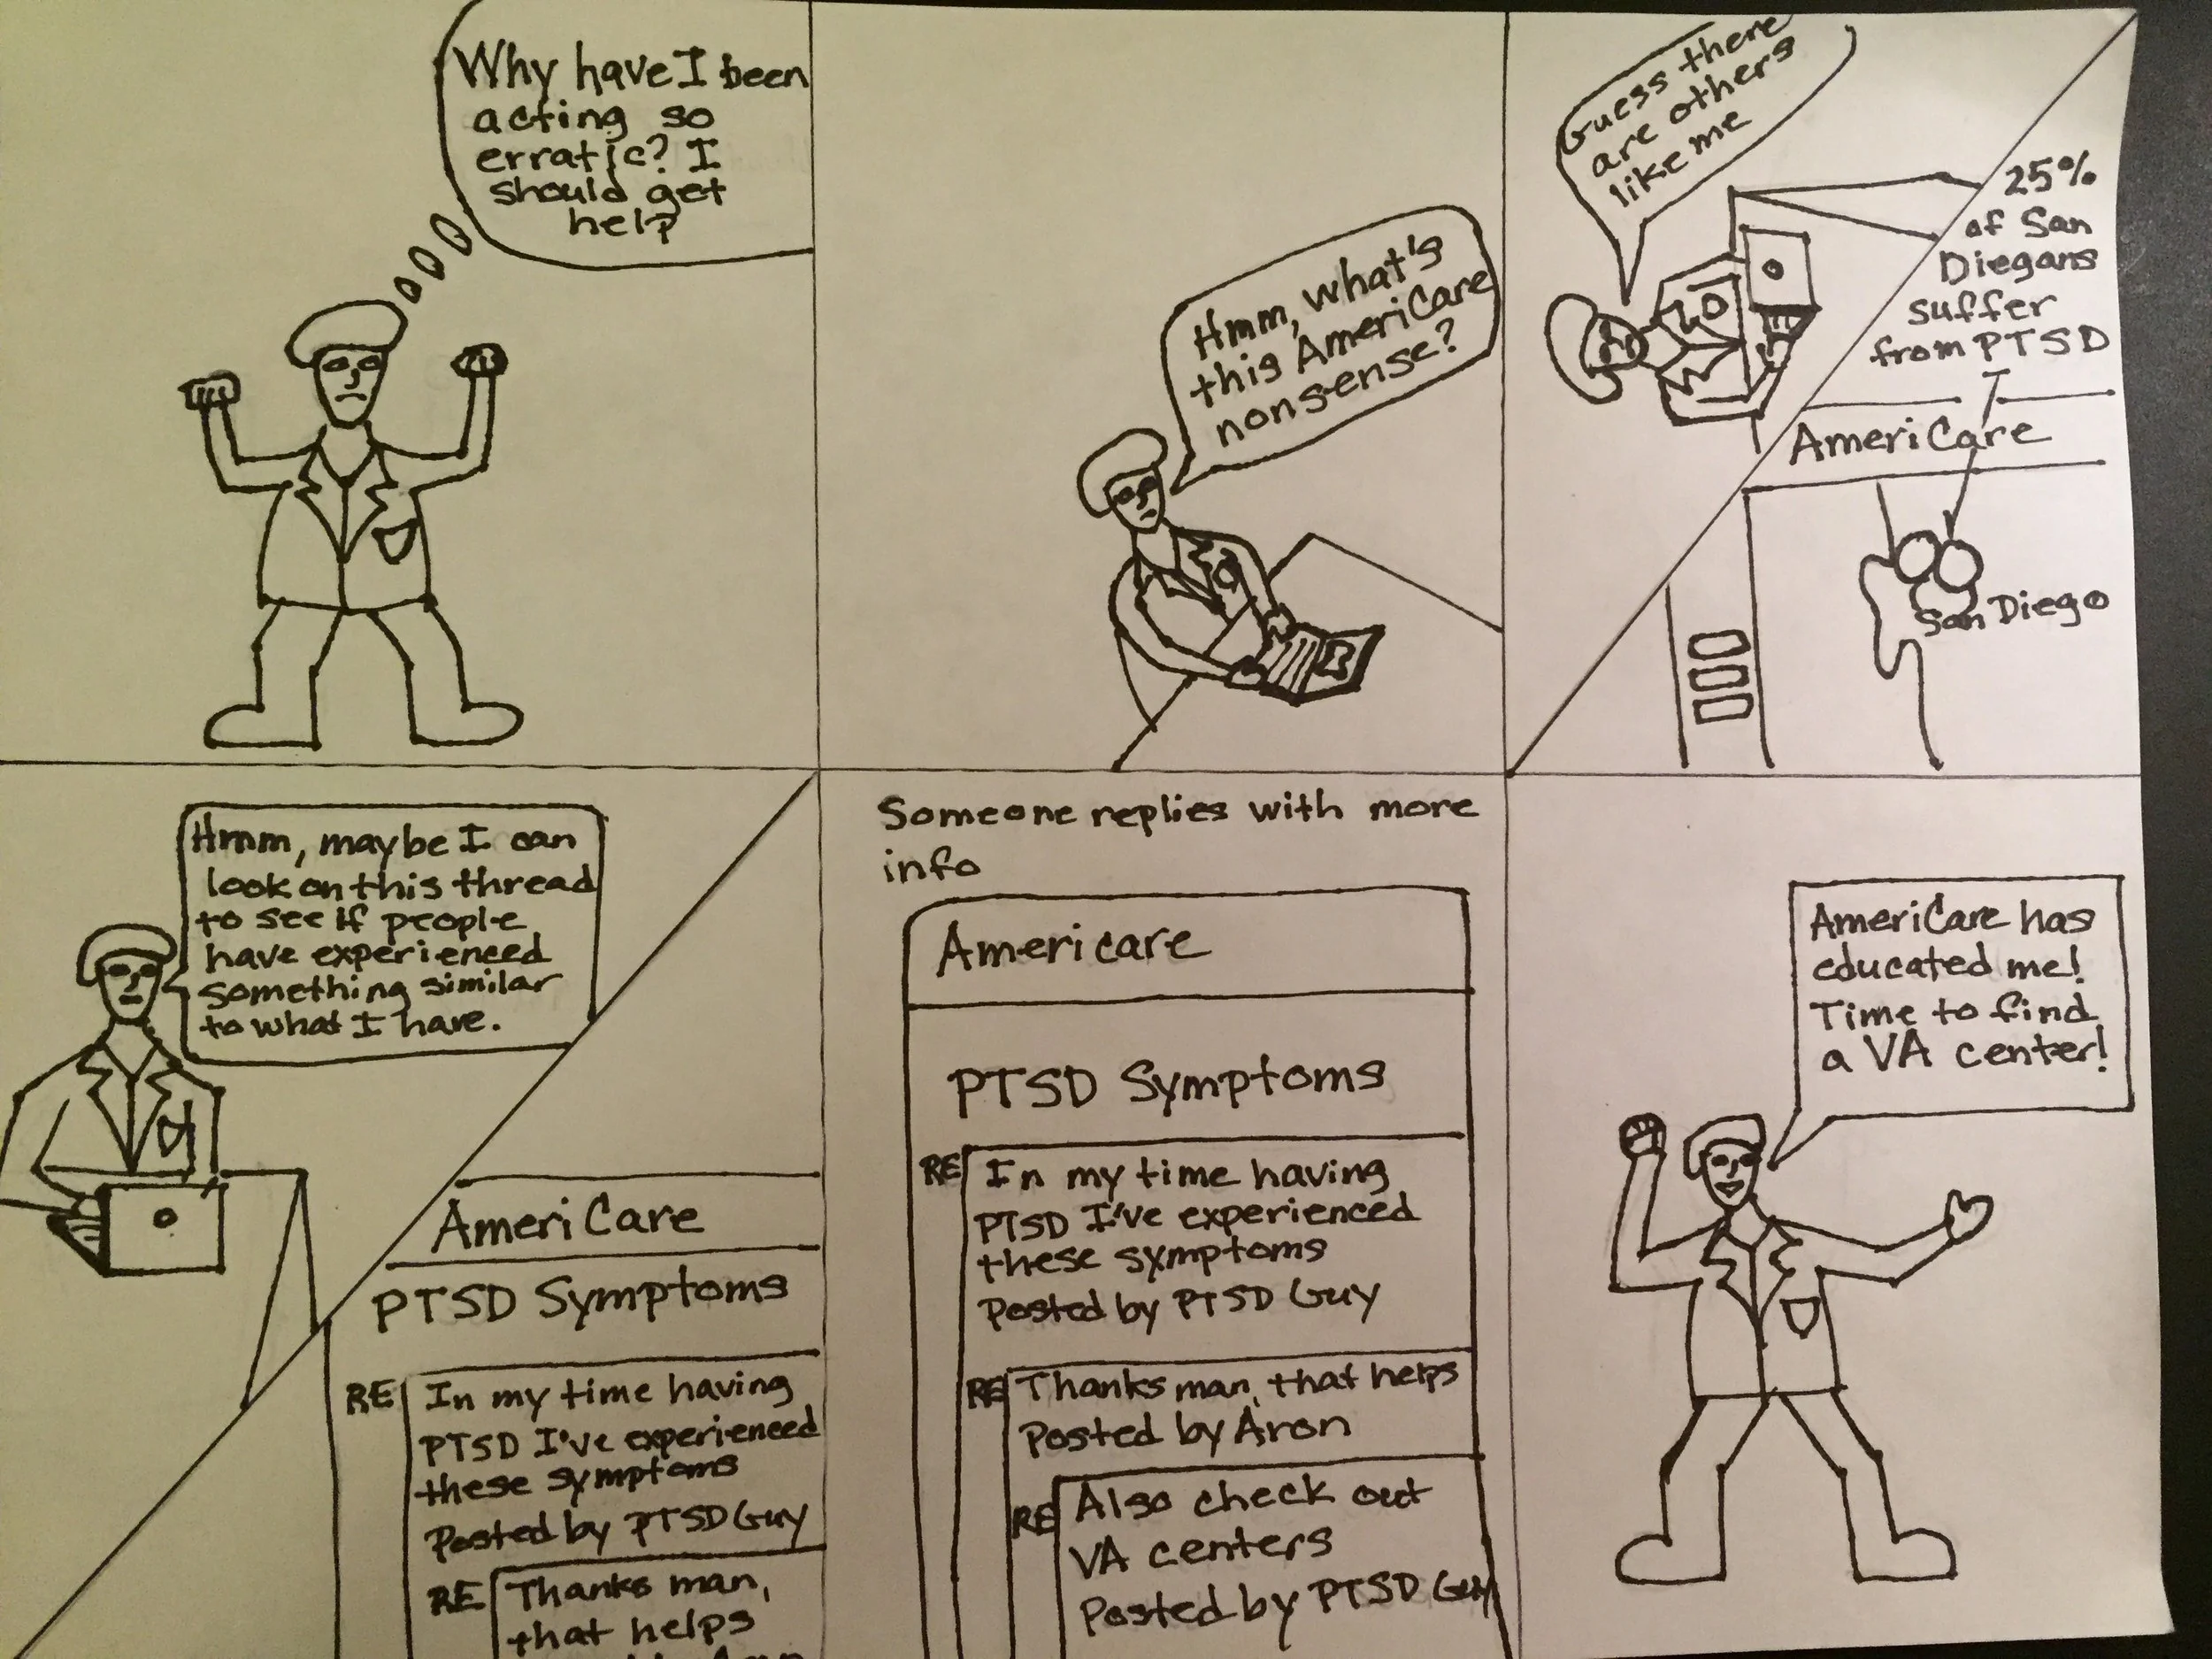 Why have I been
acting so
erratic? I
should get
help
Hmm, what's
this AmeriCare
nonsense?
Guess there
are others
like me
25%
of San
Diegans
suffer
from PTSD
AmeriCare
San Diego
Hmm, maybe I can
look on this thread
to see if people
have experienced
something similar
to what I have.
AmeriCare
PTSD Symptoms
RE In my time having
PTSD I've experienced
these symptoms
Posted by PTSD Guy
RE Thanks man,
that helps
Someone replies with more
info
Americare
PTSD Symptoms
RE In my time having
PTSD I've experienced
these symptoms
Posted by PTSD Guy
RE Thanks man, that helps
Posted by Aron
RE Also check out
VA centers
Posted by PTSD Guy
AmeriCare has
educated me!
Time to find
a VA center!